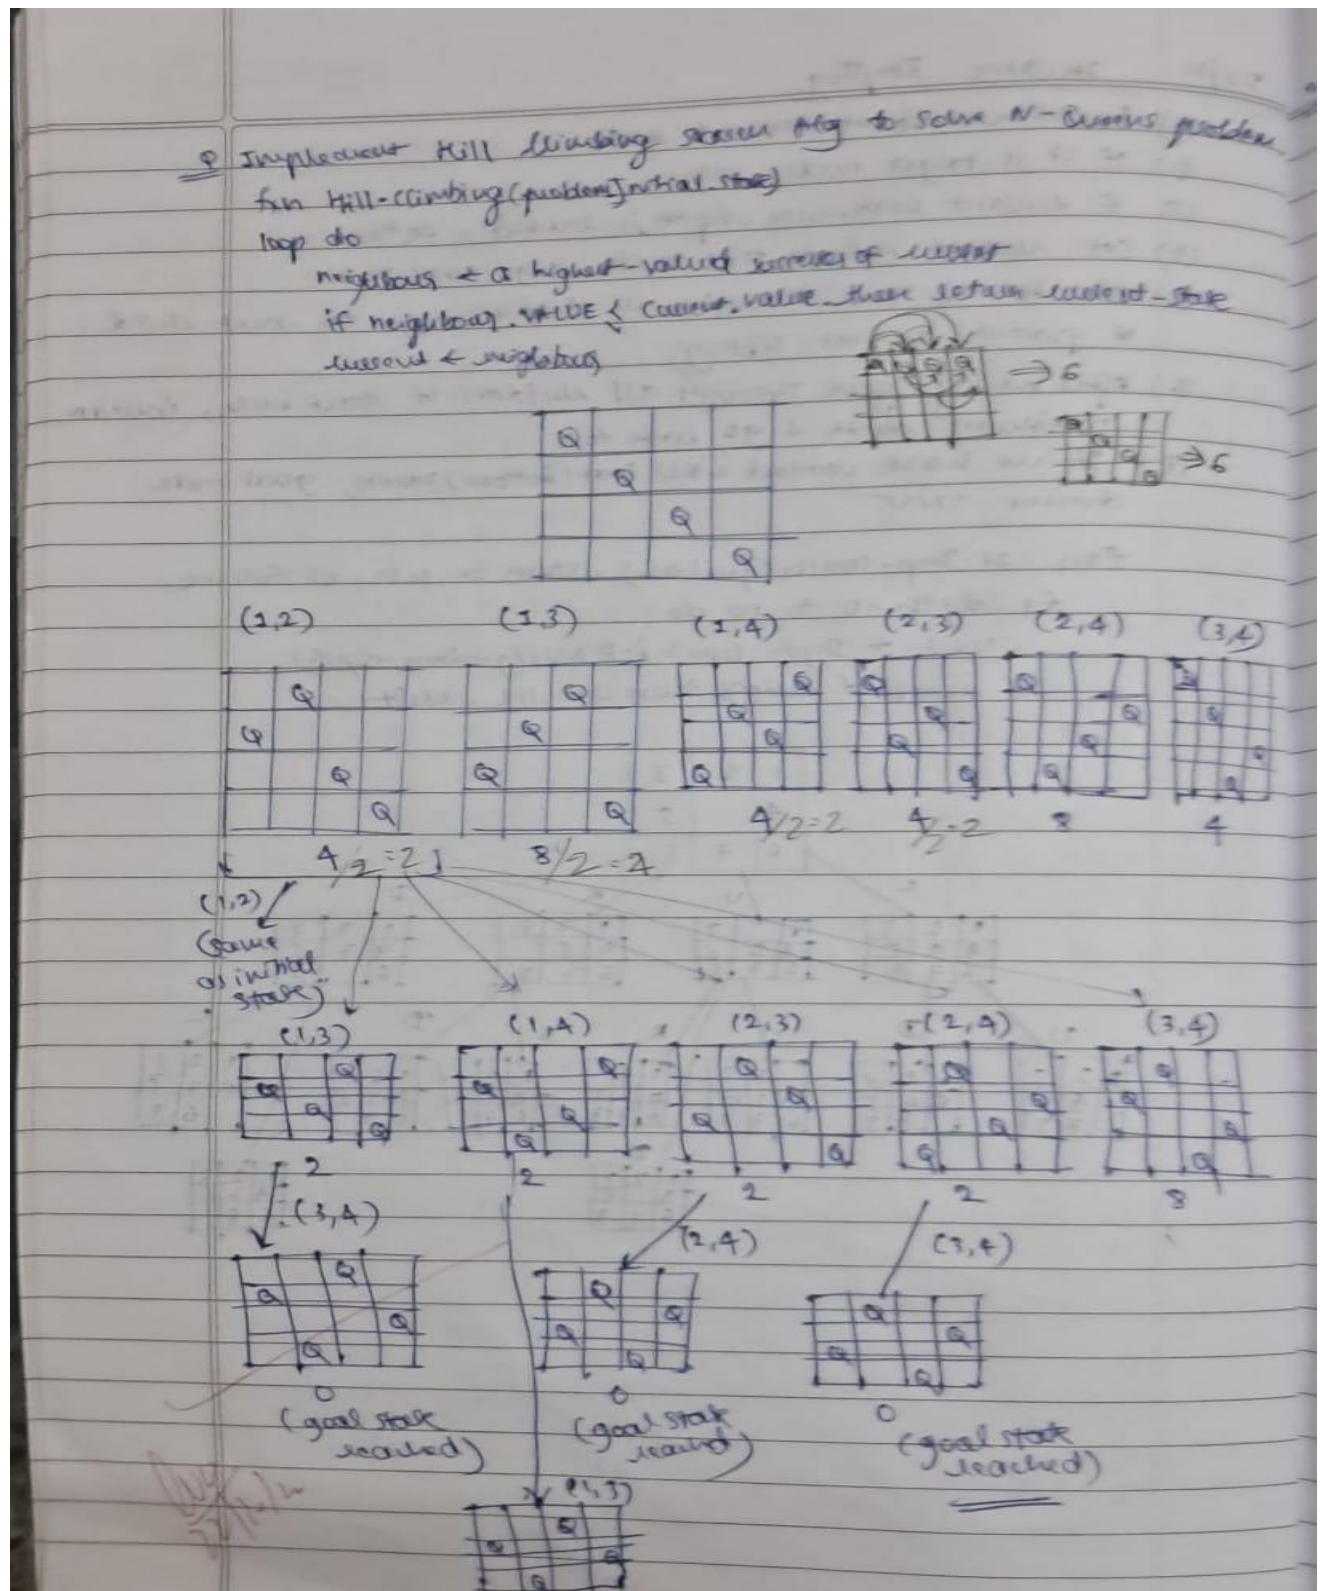 Q Implement Hill Climbing search Alg to solve N-Queens problem
fun Hill-Climbing(problem Initial state)
loop do
neighbour ← a highest-valued successor of current
if neighbour.VALUE ≤ Current.value then return current-state
current ← neighbour
Q Q Q Q ⇒ 6
Q Q Q Q ⇒ 6
Q
Q
Q
Q
(1,2) (1,3) (1,4) (2,3) (2,4) (3,4)
Q Q Q Q Q
Q Q Q Q Q Q
Q Q Q Q Q Q
Q Q Q Q Q Q
4/2=2 8/2=4 4/2=2 4/2=2 8 4
(1,2)
(same
as initial
state)
(1,3) (1,4) (2,3) (2,4) (3,4)
Q Q Q Q Q
Q Q Q Q Q
Q Q Q Q Q
Q Q Q Q Q
2 2 2 2 8
(3,4) (2,4) (3,4)
Q Q Q
Q Q Q
Q Q Q
Q Q Q
0 0 0
(goal state (goal state (goal state
reached) reached) reached)
(1,3)
Q
Q Q
Q